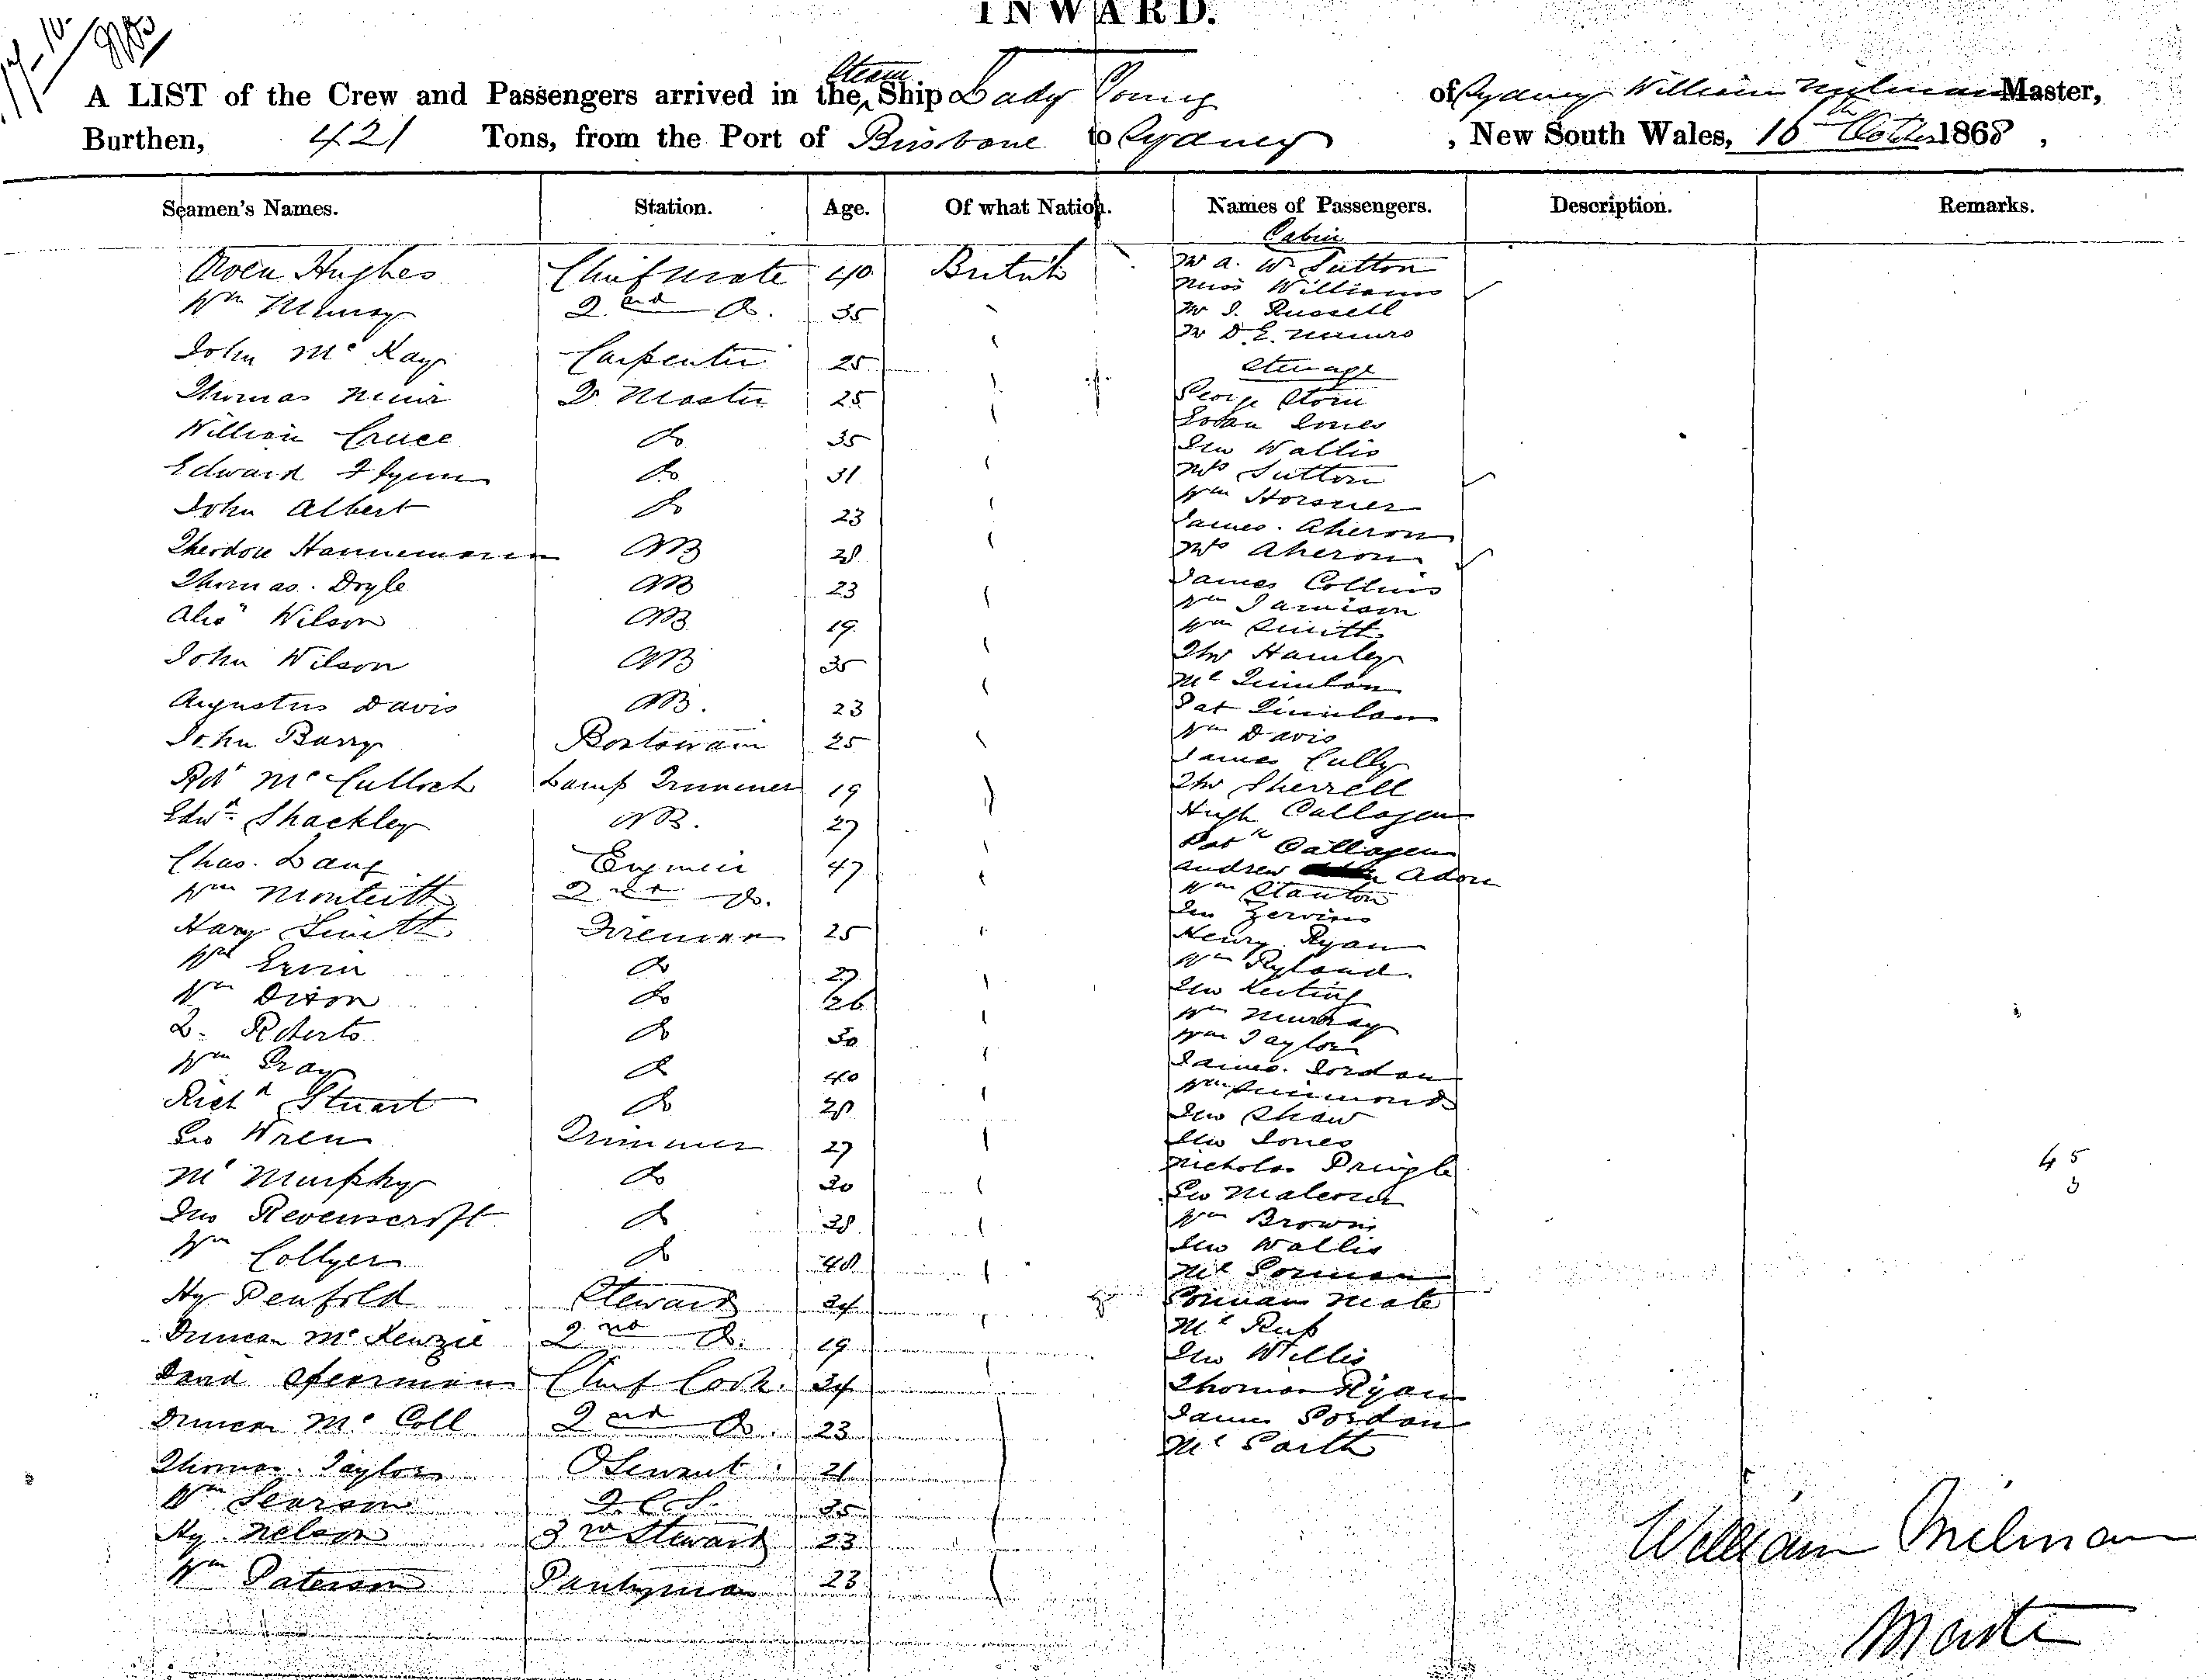 INWARD.
A LIST of the Crew and Passengers arrived in the Steam Ship Lady Young of Sydney William Milman Master,
Burthen, 421 Tons, from the Port of Brisbane to Sydney, New South Wales, 16th October 1868,
Seamen's Names. Station. Age. Of what Nation. Names of Passengers. Description. Remarks.
Cabin
Owen Hughes Chief Mate 40 British
Wm Murray 2nd Do. 35
John McKay Carpenter 25
Thomas Muir Qr Master 25
William Cruce Do 35
Edward Flynn Do 31
John Albert Do 23
Theodore Hannemann AB 28
Thomas. Doyle AB 23
Alexr Wilson AB 19
John Wilson AB 35
Augustus Davis AB. 23
John Barry Boatswain 25
Robt McCulloch Lamp Trimmer 19
Edwd Shackley AB. 27
Chas. Lang Engineer 47
Wm Monteith 2nd Do.
Harry Smith Fireman 25
Wm Ervin Do 27
Wm Dixon Do 26
Roberts Do 30
Wm Gray Do 40
Richd Stuart Do 28
Geo Wren Trimmer 27
Ml Murphy Do 30
Jno Revenscroft Do 38
Wm Collyer Do 48
Hy Penfold Steward 34
Duncan McKenzie 2nd Do. 19
David Chief Cook. 34
Duncan McColl 2nd Do. 23
Thomas. Taylor 21
Wm Searson 35
Hy Nelson 3rd Steward 23
Wm Paterson Pantryman 23
Mr A. W. Sutton
Miss Williams
Mr J. Russell
Mr D. E. Munro
Steerage
George Storie
Jones
Jno Wallis
Mrs Sutton
Wm Horsner
James. Aheron
Mrs Aheron
James Collins
Wm Jamison
Wm Smith
Thos Hamley
Ml Quinlan
Pat Quinlan
Wm Davis
James Cully
Thos Sherrell
Hugh Callagen
Patk Callagen
Andrew Adon
Wm Stanton
Jno Zervins
Henry Ryan
Wm Ryland.
Jno Keeting
Wm Murray
Wm Taylor
James. Jordan
Wm Simmonds
Jno Shaw
Jno Jones
Nicholas Pringle
Geo
Wm Brown
Jno Wallis
Ml Gorman
Mate
Jno Willis
Thomas Ryan
James Gordon
45
3
William Milman
Master